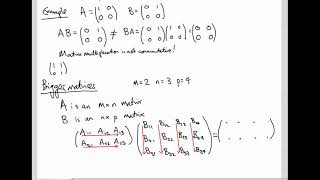 Example A = (1 0 0 0) B = (0 1 0 0)
AB = (0 1 0 0) ≠ BA = (0 1 0 0)(1 0 0 0) = (0 0 0 0)
Matrix multiplication is not commutative!
(1 1 0 0)
Bigger matrices m=2 n=3 p=4
A is an m×n matrix
B is an n×p matrix
(A11 A12 A13 A21 A22 A23) (B11 B12 B13 B14 B31 B32 B33 B34) =